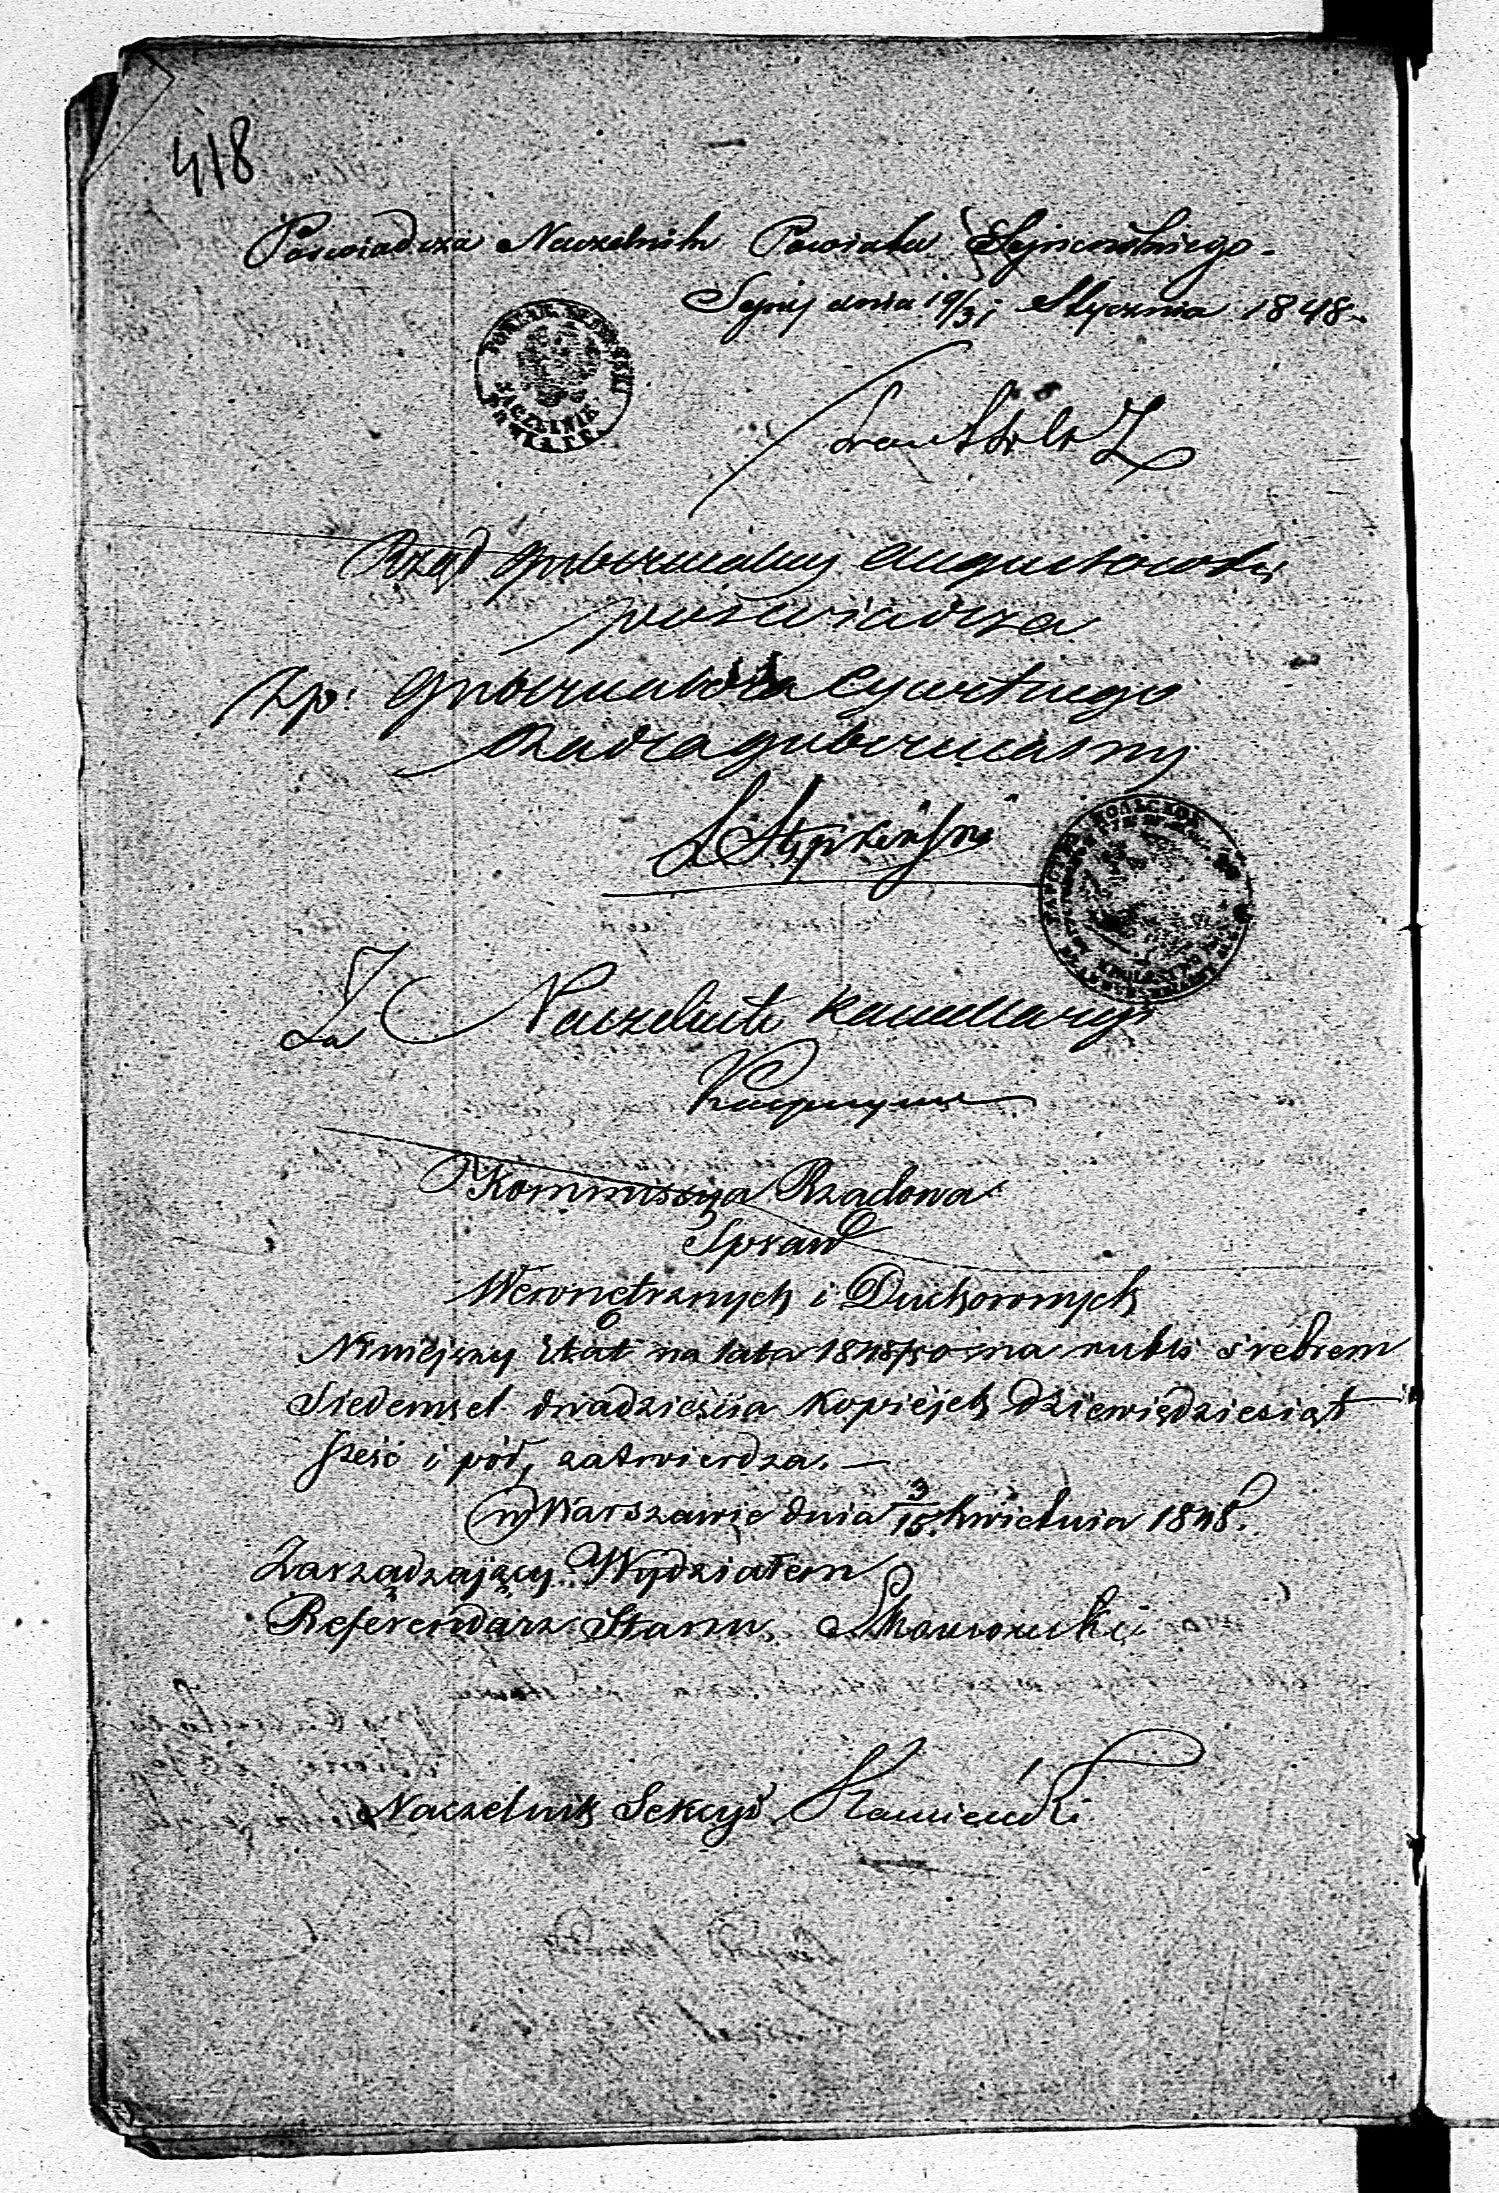 418
Poswiadcza Naczelnik Powiatu Sejneńskiego.
Sejny dnia 19/31 Stycznia 1848.
POWIAT SEJNEŃSKI
NACZELNIK POWIATU
Rząd Gubernialny Augustowski
poświadcza
Zp: Gubernatora Cywilnego
Radca gubernialny
Za Naczelnik Kancellaryi
Kommissya Rządowa
Spraw
Wewnętrznych i Duchownych
Niniejszy Etat na lata 1848/50 na rubli srebrem
Siedemset dwadzieścia kopiejek dziewiędziesiąt
sześć i pół, zatwierdza. —
w Warszawie dnia 3/15 Kwietnia 1848.
Zarządzający Wydziałem
Referendarz Stanu,
Naczelnik Sekcyi Kamieński